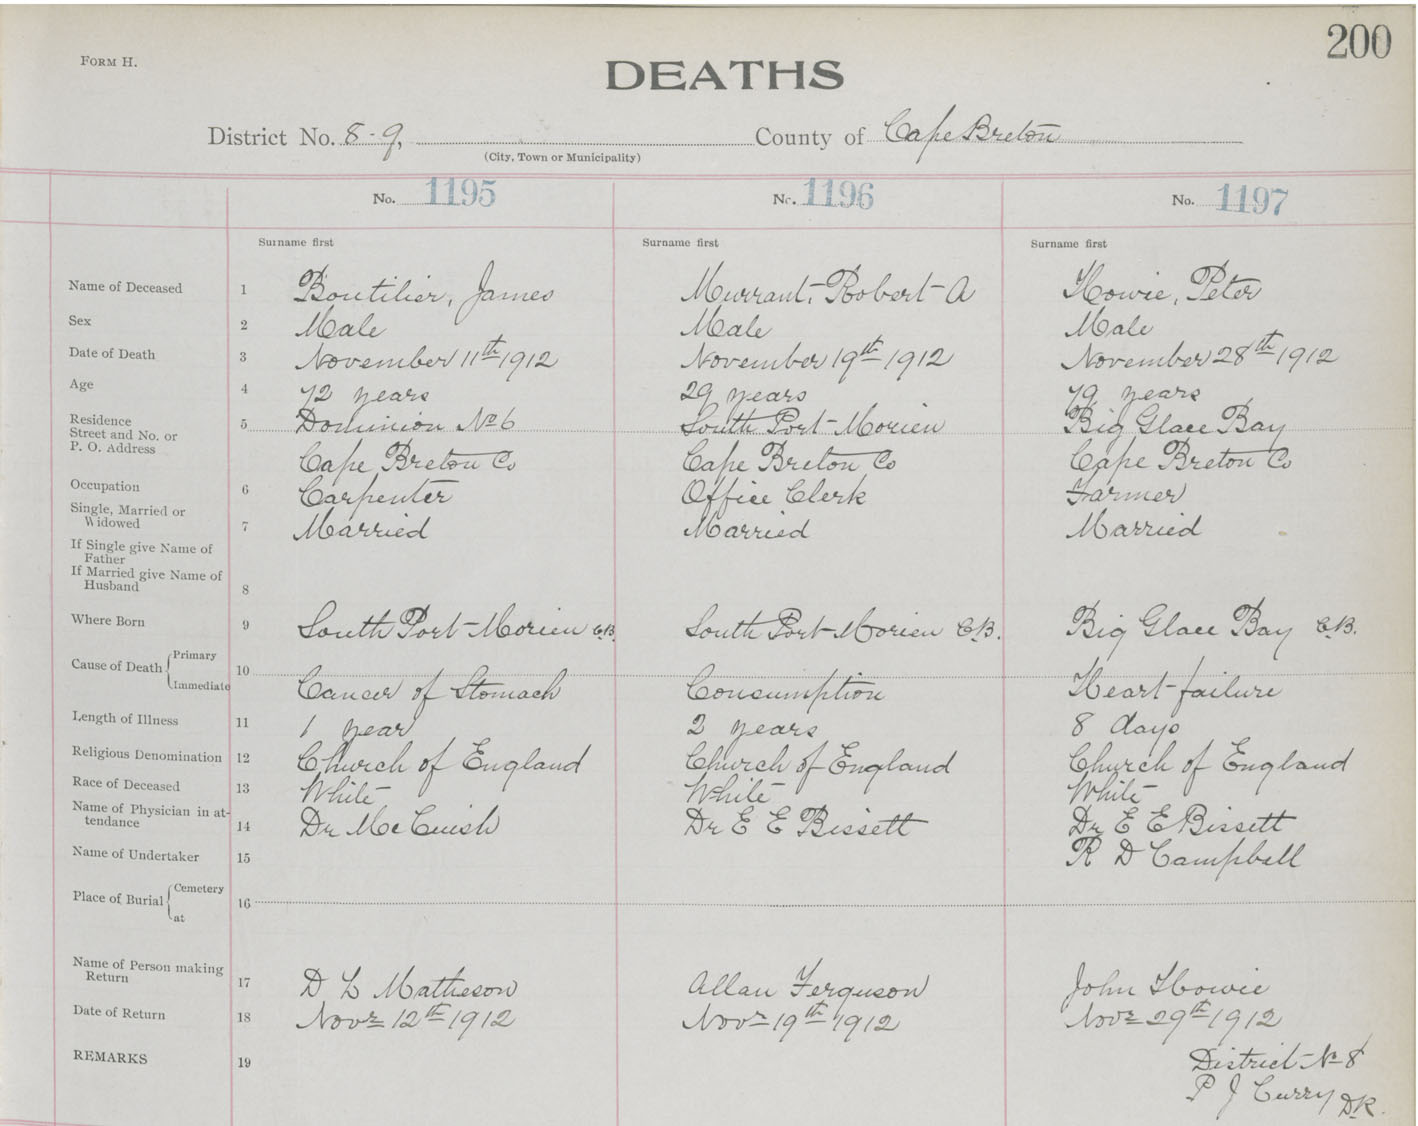 200
FORM H.
DEATHS
District No. 8-9, County of Cape Breton
(City, Town or Municipality)
No. 1195 No. 1196 No. 1197
Surname first Surname first Surname first
Name of Deceased 1 Boutilier, James Murrant, Robert A Howie, Peter
Sex 2 Male Male Male
Date of Death 3 November 11th 1912 November 19th 1912 November 28th 1912
Age 4 72 years 29 years 79 years
Residence
Street and No. or 5 Dominion No 6 South Port Morien Big Glace Bay
P. O. Address
Cape Breton Co Cape Breton Co Cape Breton Co
Occupation 6 Carpenter Office Clerk Farmer
Single, Married or
Widowed 7 Married Married Married
If Single give Name of
Father
If Married give Name of
Husband 8
Where Born 9 South Port Morien C.B. South Port Morien C.B. Big Glace Bay C.B.
Cause of Death { Primary 10
Immediate Cancer of Stomach Consumption Heart failure
Length of Illness 11 1 year 2 years 8 days
Religious Denomination 12 Church of England Church of England Church of England
Race of Deceased 13 White White White
Name of Physician in at-
tendance 14 Dr McCuish Dr E E Bissett Dr E E Bissett
Name of Undertaker 15 R D Campbell
Place of Burial { Cemetery 16
at
Name of Person making
Return 17 D L Matheson Allan Ferguson John Howie
Date of Return 18 Novr 12th 1912 Novr 19th 1912 Novr 29th 1912
REMARKS 19 District No 8
P J Curry D.R.